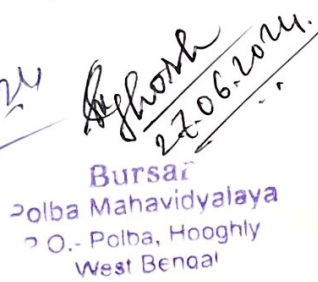 24
Ghosh
27.06.2024.
Bursar
Polba Mahavidyalaya
P.O.- Polba, Hooghly
West Bengal